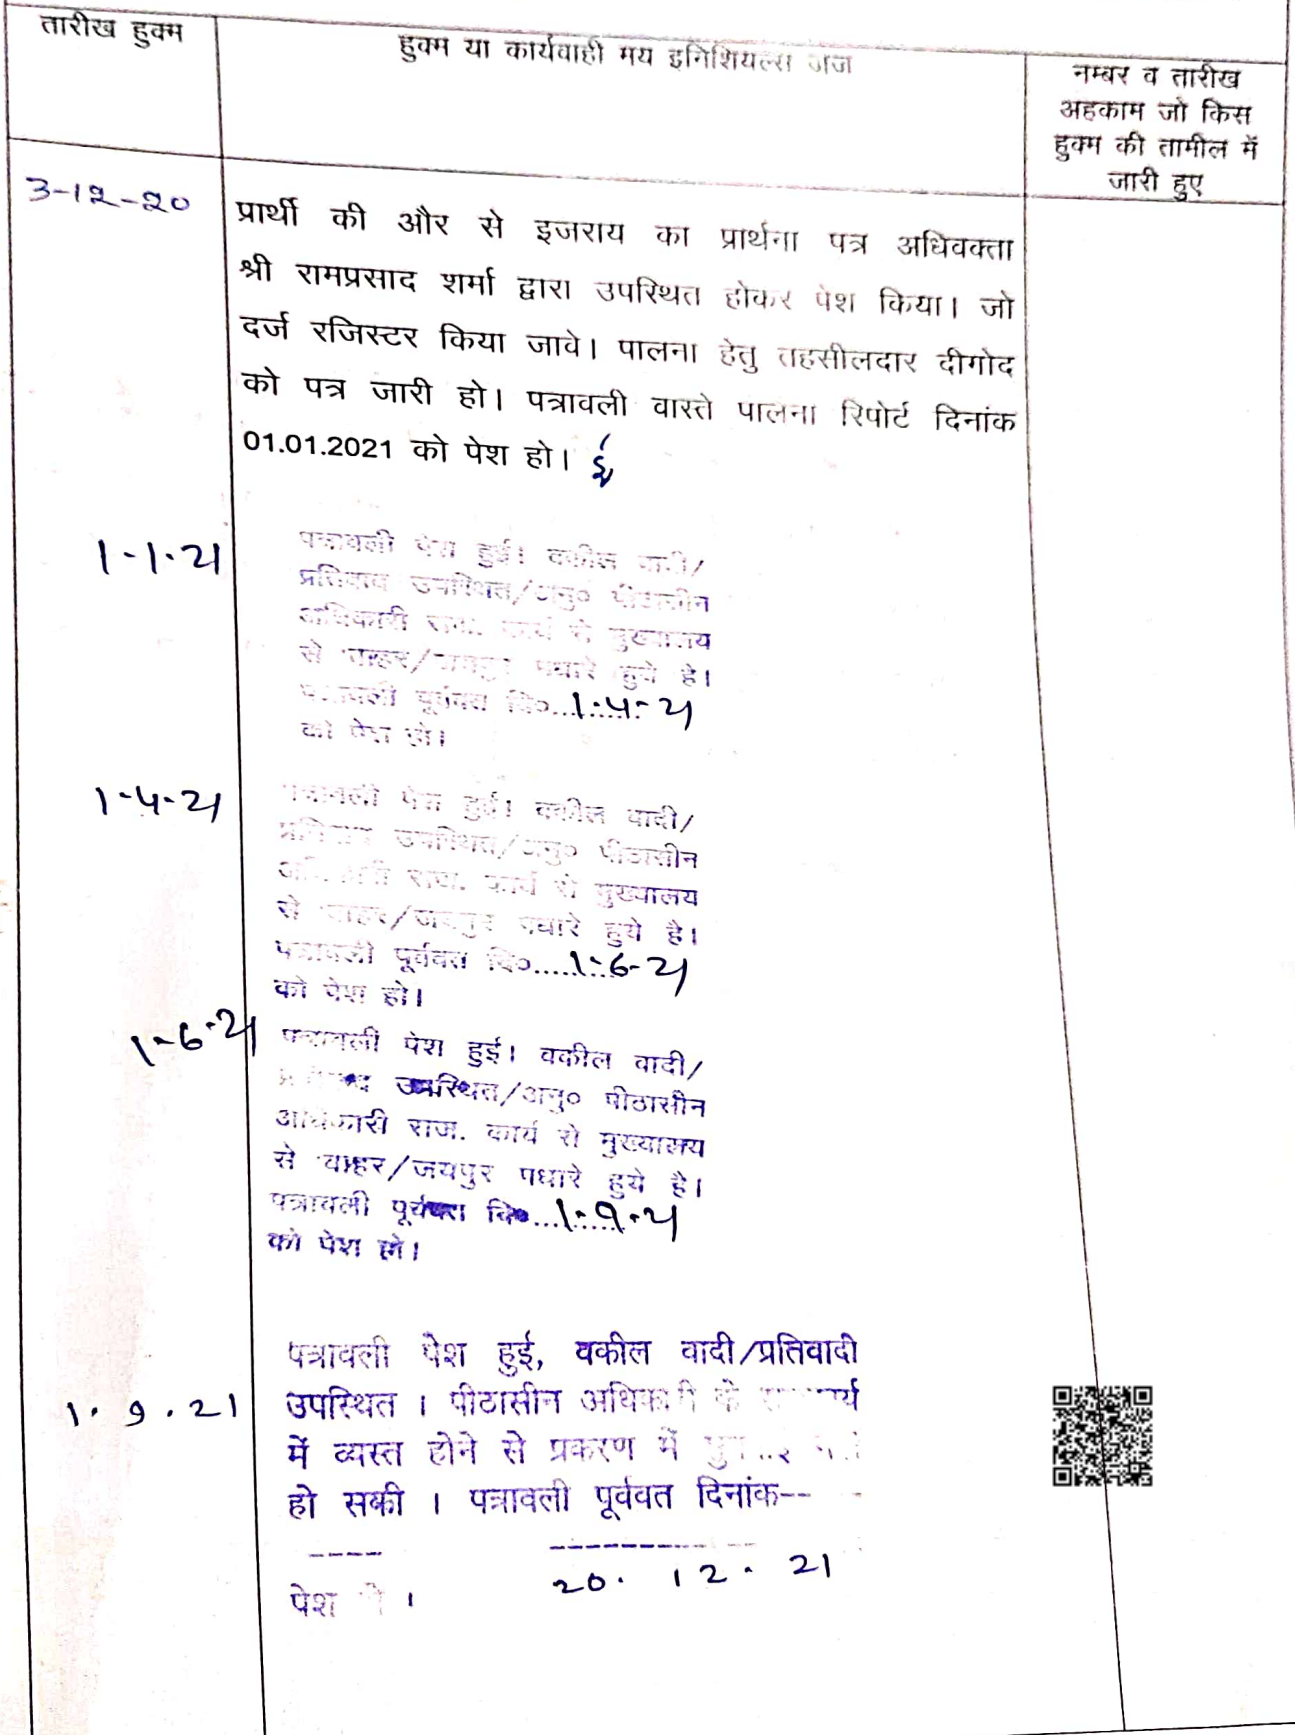 तारीख हुक्म
हुक्म या कार्यवाही मय इनिशियल्स जज
नम्बर व तारीख
अहकाम जो किस
हुक्म की तामील में
जारी हुए
3-12-20
प्रार्थी की और से इजराय का प्रार्थना पत्र अधिवक्ता
श्री रामप्रसाद शर्मा द्वारा उपस्थित होकर पेश किया। जो
दर्ज रजिस्टर किया जावे। पालना हेतु तहसीलदार दीगोद
को पत्र जारी हो। पत्रावली वास्ते पालना रिपोर्ट दिनांक
01.01.2021 को पेश हो।
1-1-21
पत्रावली पेश हुई। वकील वादी/
प्रतिवाद उपस्थित/अनु० पीठासीन
अधिकारी राज. कार्य से मुख्यालय
से बाहर/जयपुर पधारे हुये है।
पत्रावली पूर्ववत दि०...1-4-21
को पेश हो।
1-4-21
पत्रावली पेश हुई। वकील वादी/
उपस्थित/अनु० पीठासीन
राज. कार्य से मुख्यालय
से बाहर/जयपुर पधारे हुये है।
पत्रावली पूर्ववत दि०.....1-6-21
को पेश हो।
1-6-21
पत्रावली पेश हुई। वकील वादी/
उपस्थित/अनु० पीठासीन
अधिकारी राज. कार्य से मुख्यालय
से बाहर/जयपुर पधारे हुये है।
पत्रावली पूर्ववत दि०...1-9-21
को पेश हो।
1.9.21
पत्रावली पेश हुई, वकील वादी/प्रतिवादी
उपस्थित । पीठासीन अधिकारी के
में व्यस्त होने से प्रकरण में
हो सकी । पत्रावली पूर्ववत दिनांक--
20. 12. 21
पेश ।